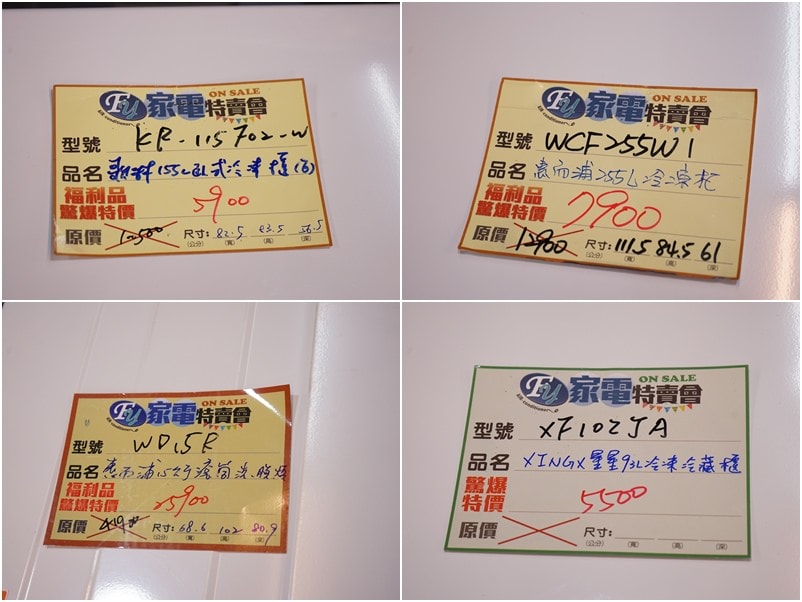 FU 家電特賣會 ON SALE
型號 KR-115F02-W
品名 155L臥式冷凍櫃(白)
福利品
驚爆特價 5900
原價
尺寸: 82.5 83.5 56.5
(公分) (寬) (高) (深)
FU 家電特賣會 ON SALE
型號 WCF255W1
品名 惠而浦255L冷凍柜
福利品
驚爆特價 7900
原價 12900
尺寸: 111.5 84.5 61
(公分) (寬) (高) (深)
FU 家電特賣會 ON SALE
air conditioner
型號 WD15E
品名 惠而浦
福利品
驚爆特價 25900
原價 41900
尺寸: 68.6 102 80.9
(公分) (寬) (高) (深)
FU 家電特賣會 ON SALE
air conditioner
型號 XF102JA
品名 XINGX星星93L冷凍冷藏櫃
驚爆
特價 5500
原價
尺寸:
(公分) (寬) (高) (深)